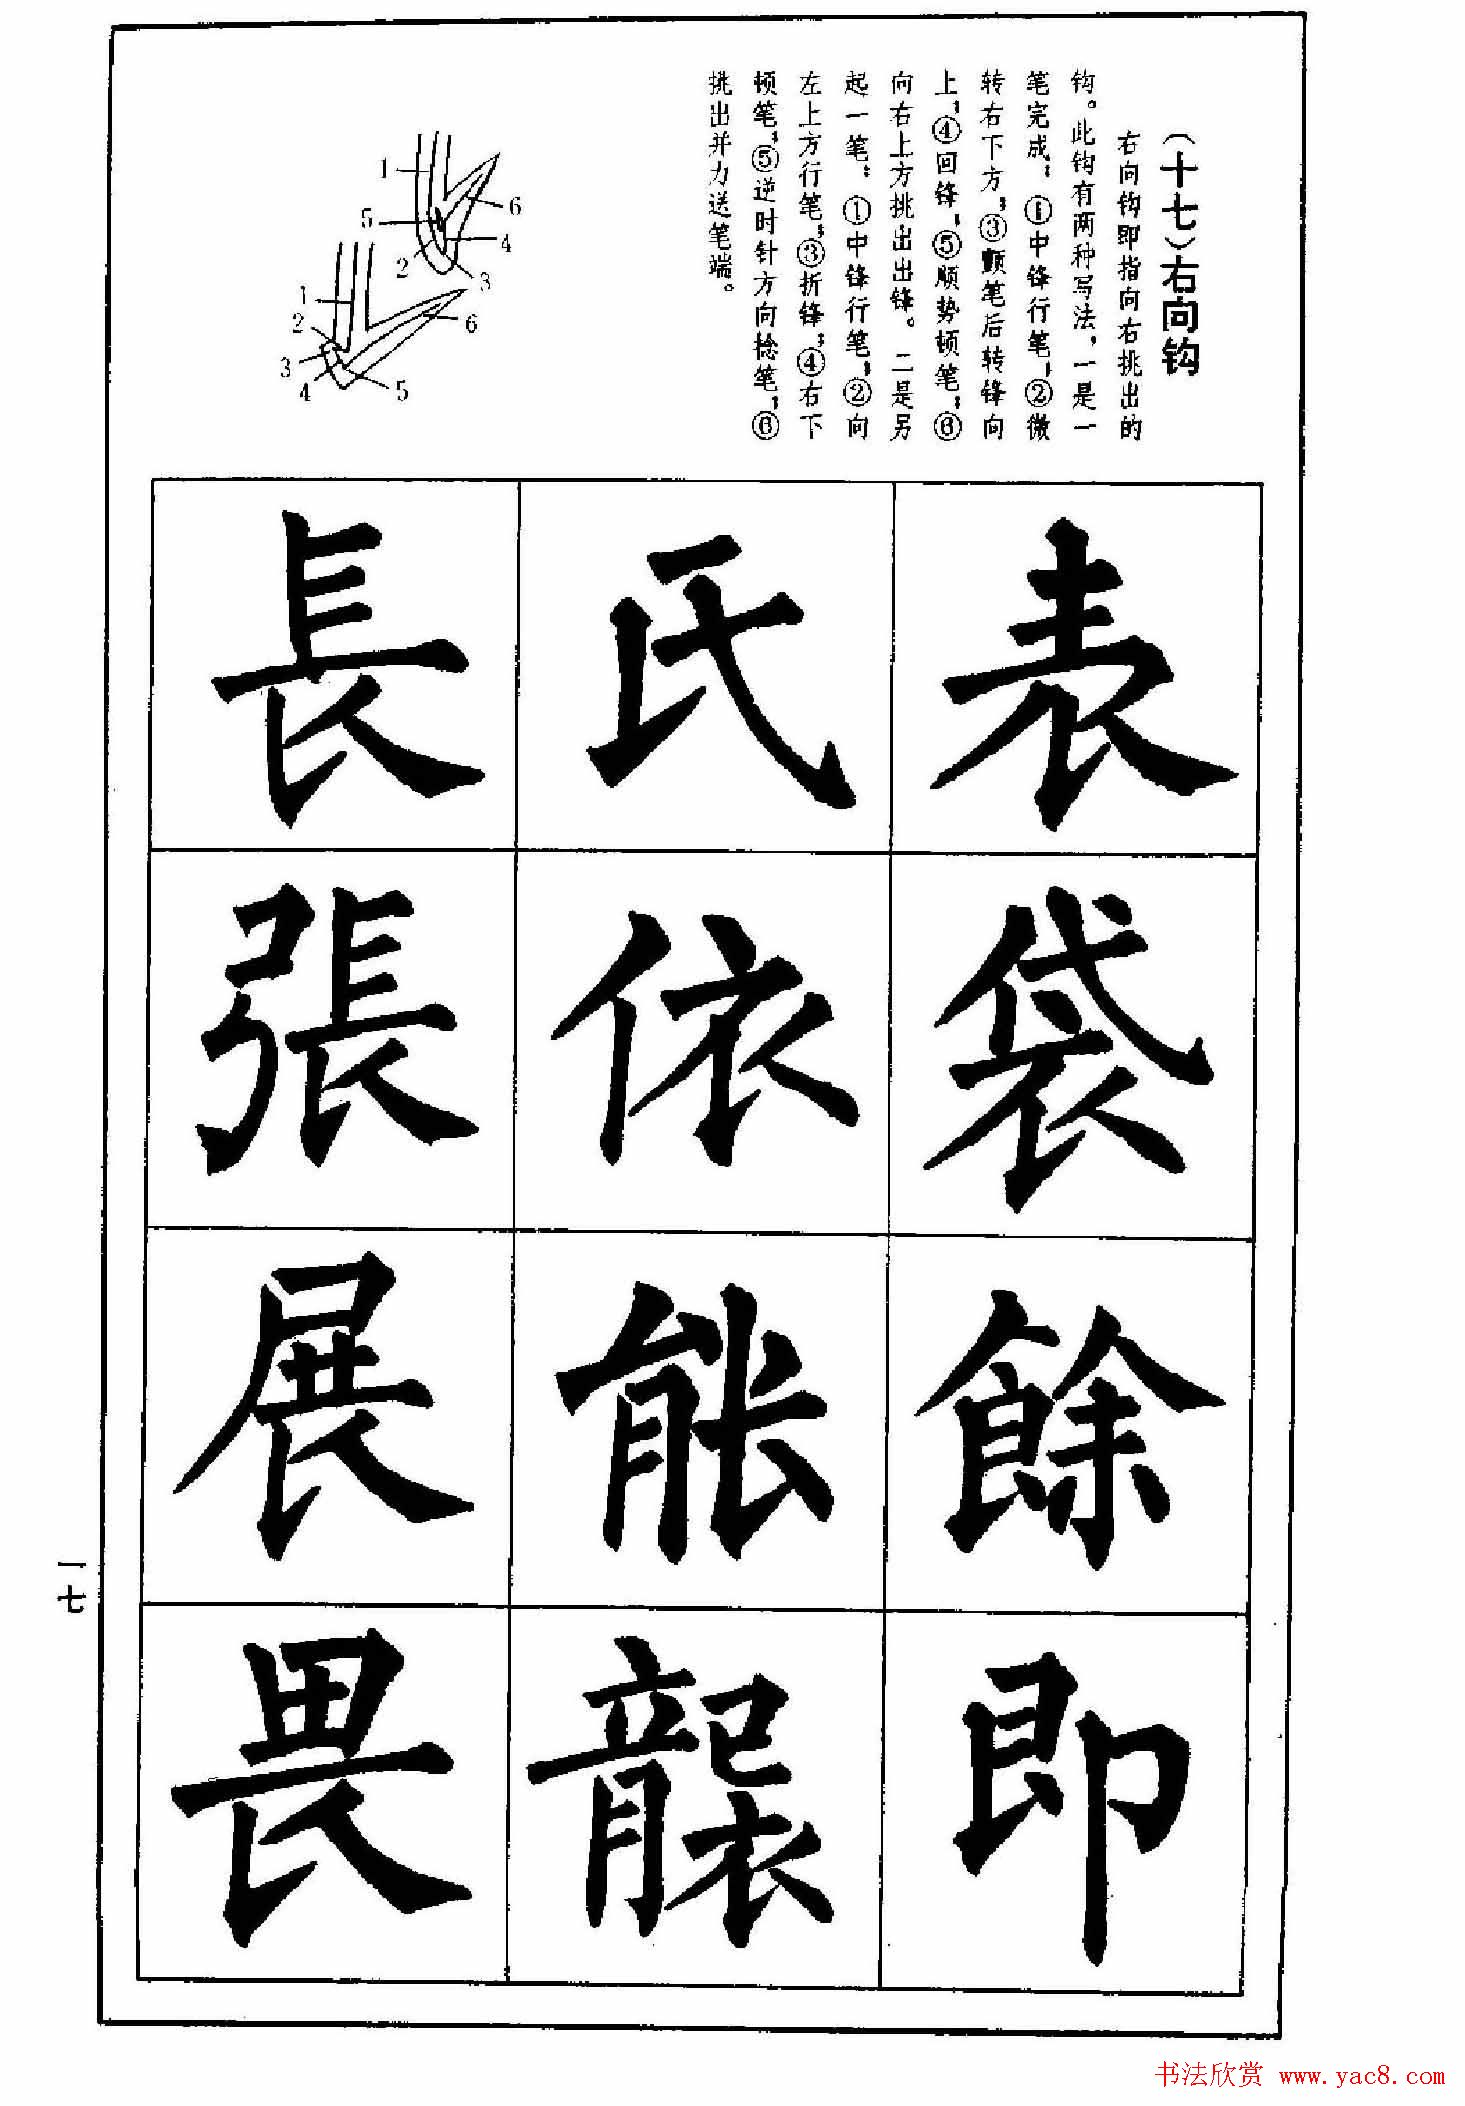 (十七)右向钩
右向钩即指向右挑出的
钩。此钩有两种写法,一是一
笔完成:①中锋行笔;②微
转右下方;③颤笔后转锋向
上;④回锋;⑤顺势顿笔;⑥
向右上方挑出出锋。二是另
起一笔:①中锋行笔;②向
左上方行笔;③折锋;④右下
顿笔;⑤逆时针方向捻笔;⑥
挑出并力送笔端。
1
5
2
6
4
3
1
2
3
4
6
5
表
袋
餘
即
氏
依
能
襲
長
張
展
畏
一七
书法欣赏 www.yac8.com